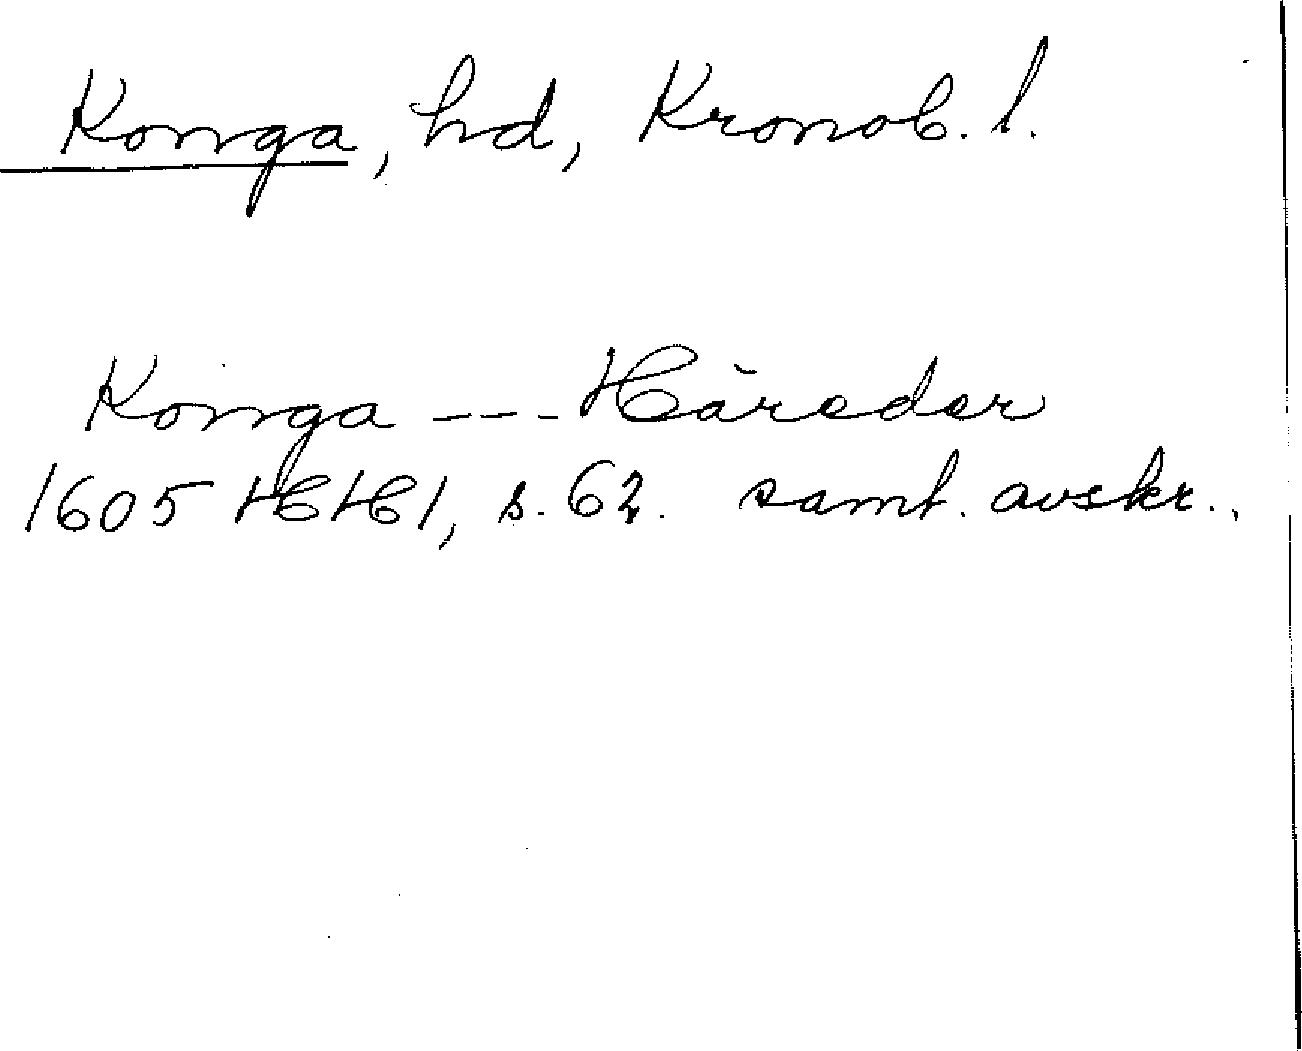 Konga, hd, Kronob. l.
Konga --- Häreder
1605 HH1, s. 62. samt. avskr..